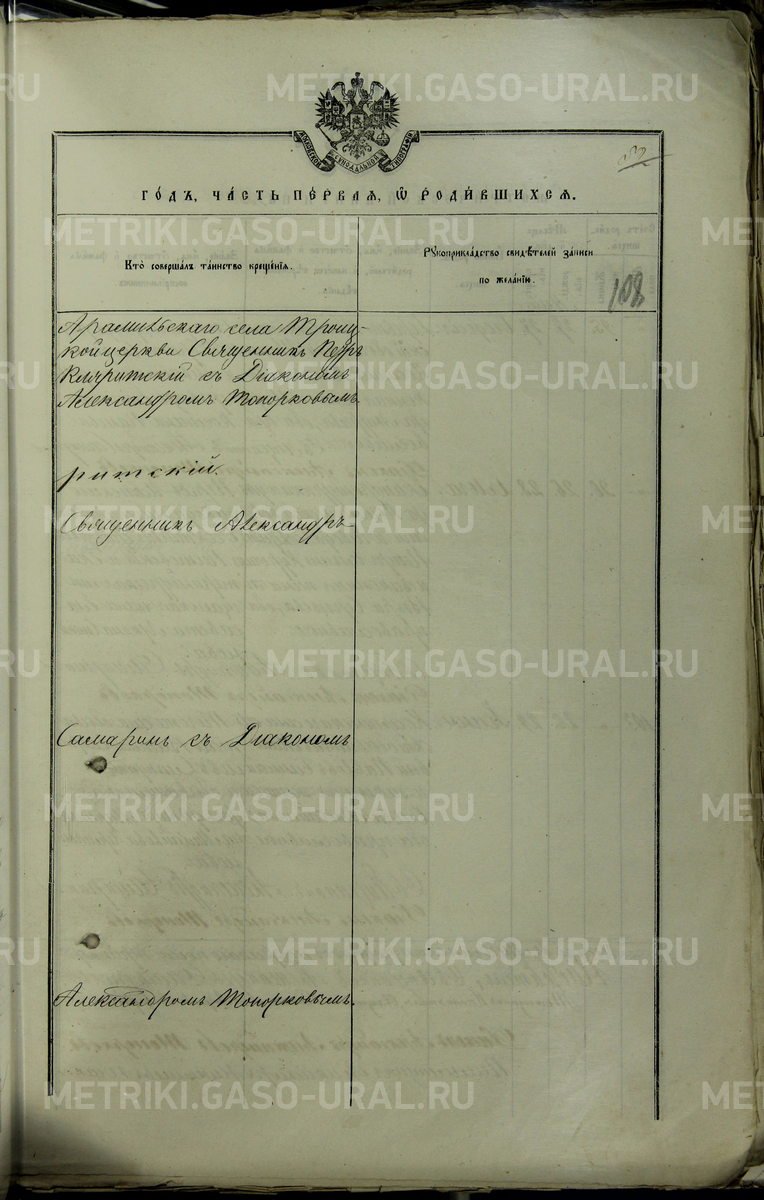 МОСКОВСКОЙ СУНОДАЛЬНОЙ ТИПОГРАФІИ
го́дъ, ча́сть пе́рвая, ѡ҆ роди́вшихсѧ.
Кто̀ соверша́лъ та́инство креще́нїѧ.
Рꙋкоприкла́дство свидѣ́телей за́писи
по жела́нїю.
108
Арамильскаго села Троиц-
кой церкви Священникъ Петръ
съ Діакономъ
Александромъ Топорковымъ
ритскій.
Священникъ Александръ
Самаринъ съ Діакономъ
Александромъ Топорковымъ.
METRIKI.GASO-URAL.RU